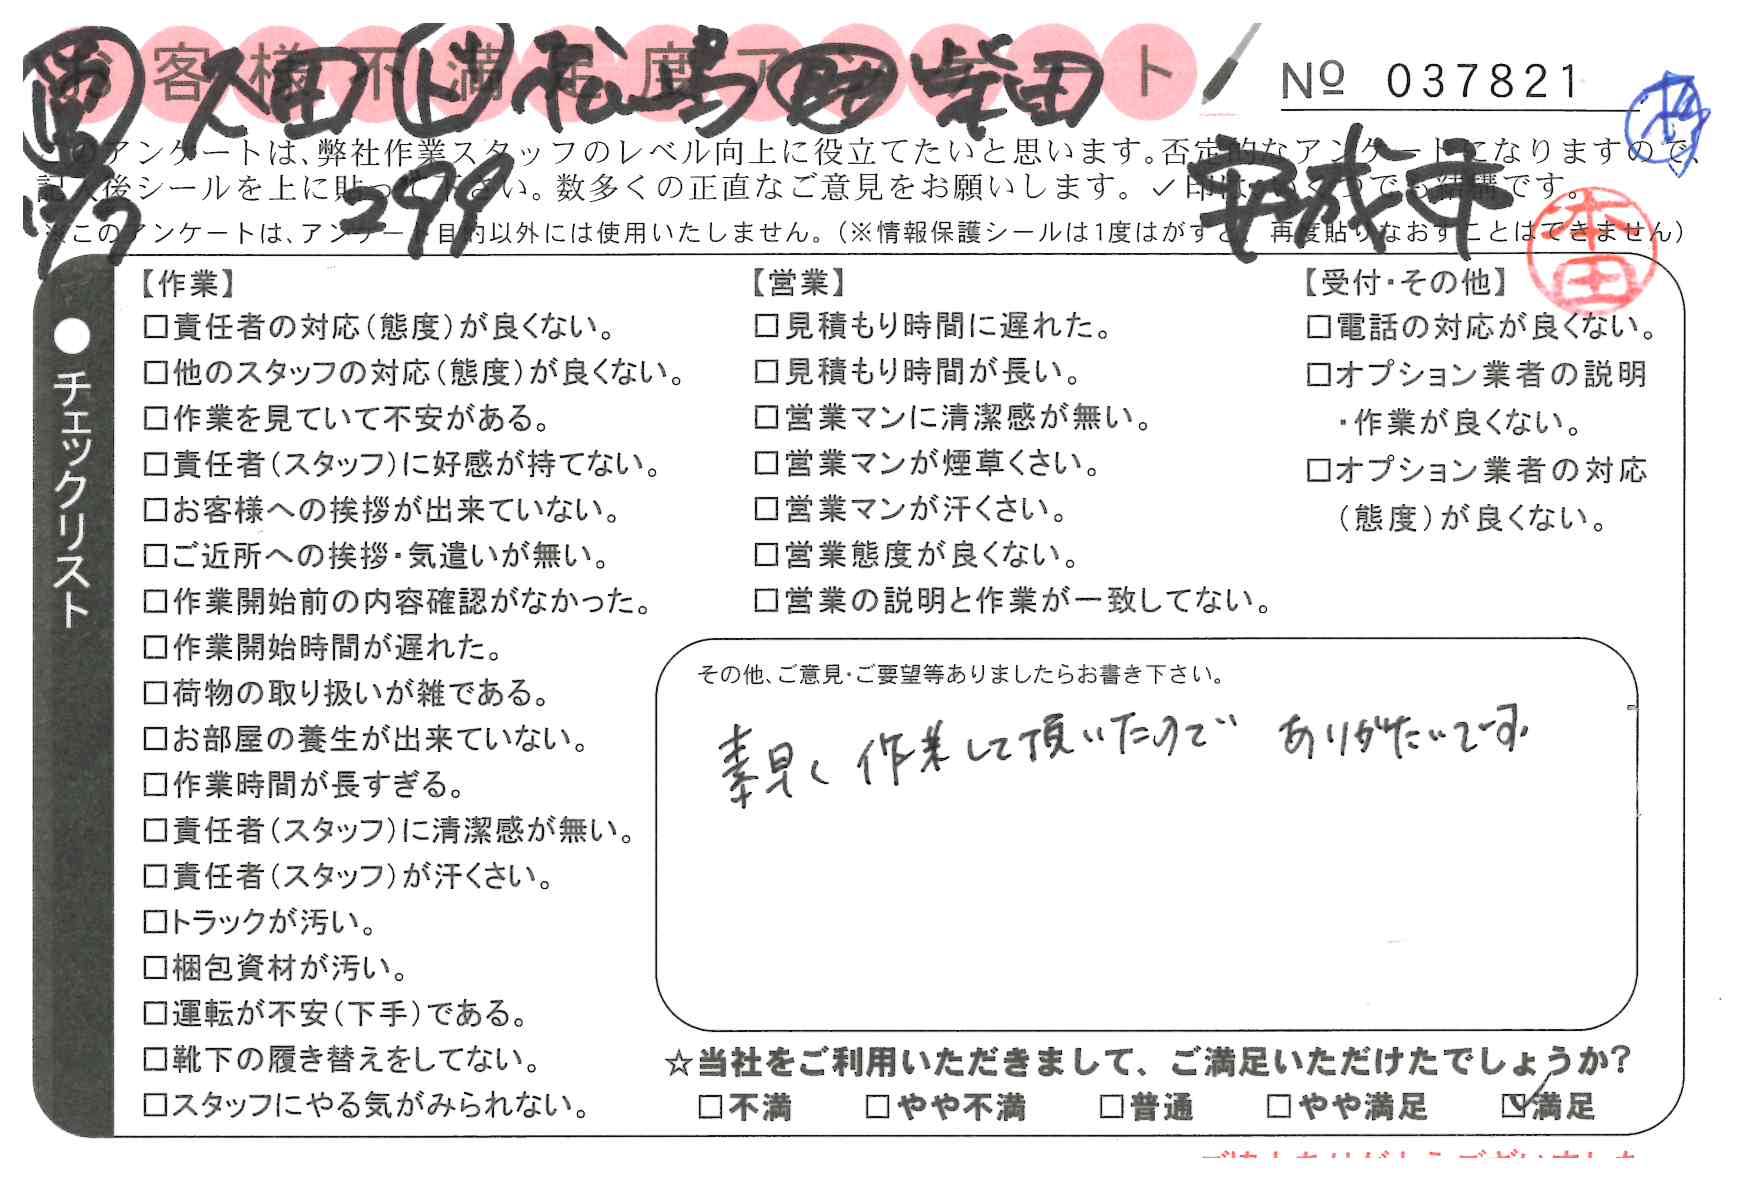 お客様不満足度アンケート
Nº 037821
久田 松島 柴田
このアンケートは、弊社作業スタッフのレベル向上に役立てたいと思います。否定的なアンケートになりますので、
記入後シールを上に貼って下さい。数多くの正直なご意見をお願いします。✓印は、いくつでも結構です。
299
※このアンケートは、アンケート目的以外には使用いたしません。(※情報保護シールは1度はがすと、再度貼りなおすことはできません)
本田
●チェックリスト
【作業】
□責任者の対応(態度)が良くない。
□他のスタッフの対応(態度)が良くない。
□作業を見ていて不安がある。
□責任者(スタッフ)に好感が持てない。
□お客様への挨拶が出来ていない。
□ご近所への挨拶・気遣いが無い。
□作業開始前の内容確認がなかった。
□作業開始時間が遅れた。
□荷物の取り扱いが雑である。
□お部屋の養生が出来ていない。
□作業時間が長すぎる。
□責任者(スタッフ)に清潔感が無い。
□責任者(スタッフ)が汗くさい。
□トラックが汚い。
□梱包資材が汚い。
□運転が不安(下手)である。
□靴下の履き替えをしてない。
□スタッフにやる気がみられない。
【営業】
□見積もり時間に遅れた。
□見積もり時間が長い。
□営業マンに清潔感が無い。
□営業マンが煙草くさい。
□営業マンが汗くさい。
□営業態度が良くない。
□営業の説明と作業が一致してない。
【受付・その他】
□電話の対応が良くない。
□オプション業者の説明
・作業が良くない。
□オプション業者の対応
(態度)が良くない。
その他、ご意見・ご要望等ありましたらお書き下さい。
素早く作業して頂いたので ありがたいです
☆当社をご利用いただきまして、ご満足いただけたでしょうか?
□不満 □やや不満 □普通 □やや満足 ☑満足